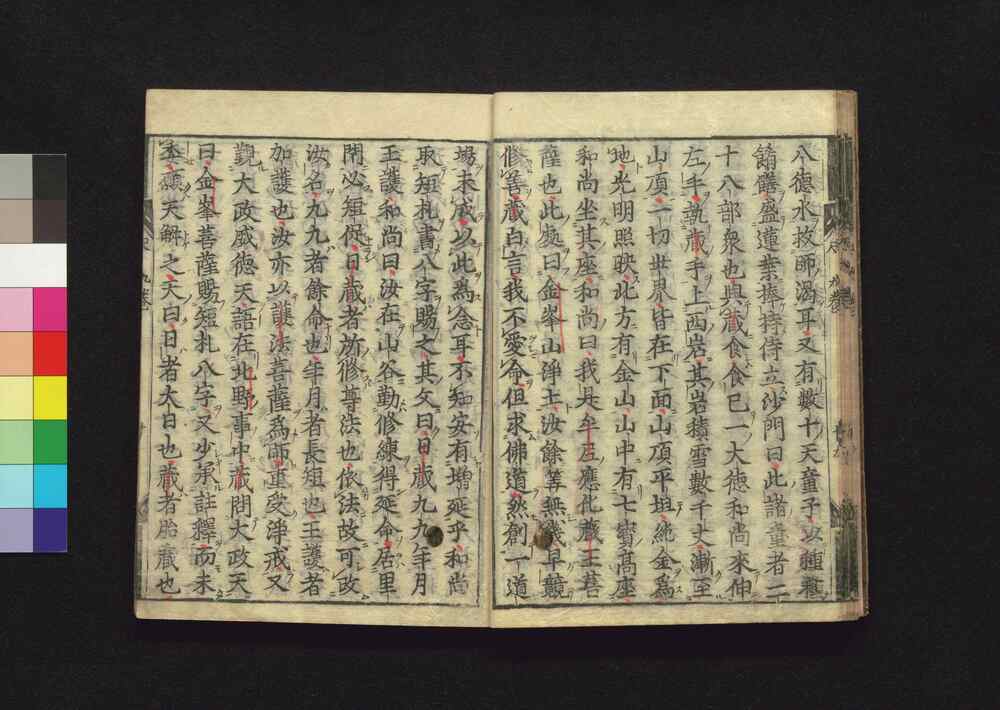 八德水救師渴耳又有數十天童子以種種
餚膳盛蓮葉捧持侍立沙門曰此諸童者二
十八部衆也與藏食食已一大德和尚來伸
左手執藏手上西岩其岩積雪數千丈漸至
山頂一切世界皆在下面山頂平坦純金爲
地光明照映此方有金山山中有七寳高座
和尚坐其座和尚曰我是牟尼應化藏王菩
薩也此處曰金峯山淨土汝餘筭無幾早競
修善藏白言我不愛命但求佛道然創一道
場未成以此爲念耳不知安有增延乎和尚
取短札書八字賜之其文曰日藏九九年月
王護和尚曰汝在山谷勤修練得延命居里
閈必短促日藏者所修尊法也依法故可改
汝名九九者餘命也年月者長短也王護者
加護也汝亦以護法菩薩爲師重受淨戒又
觀大政威德天語在北野事中藏問大政天
曰金峯菩薩賜短札八字又少承註釋而未
委願天解之天曰日者大日也藏者胎藏也